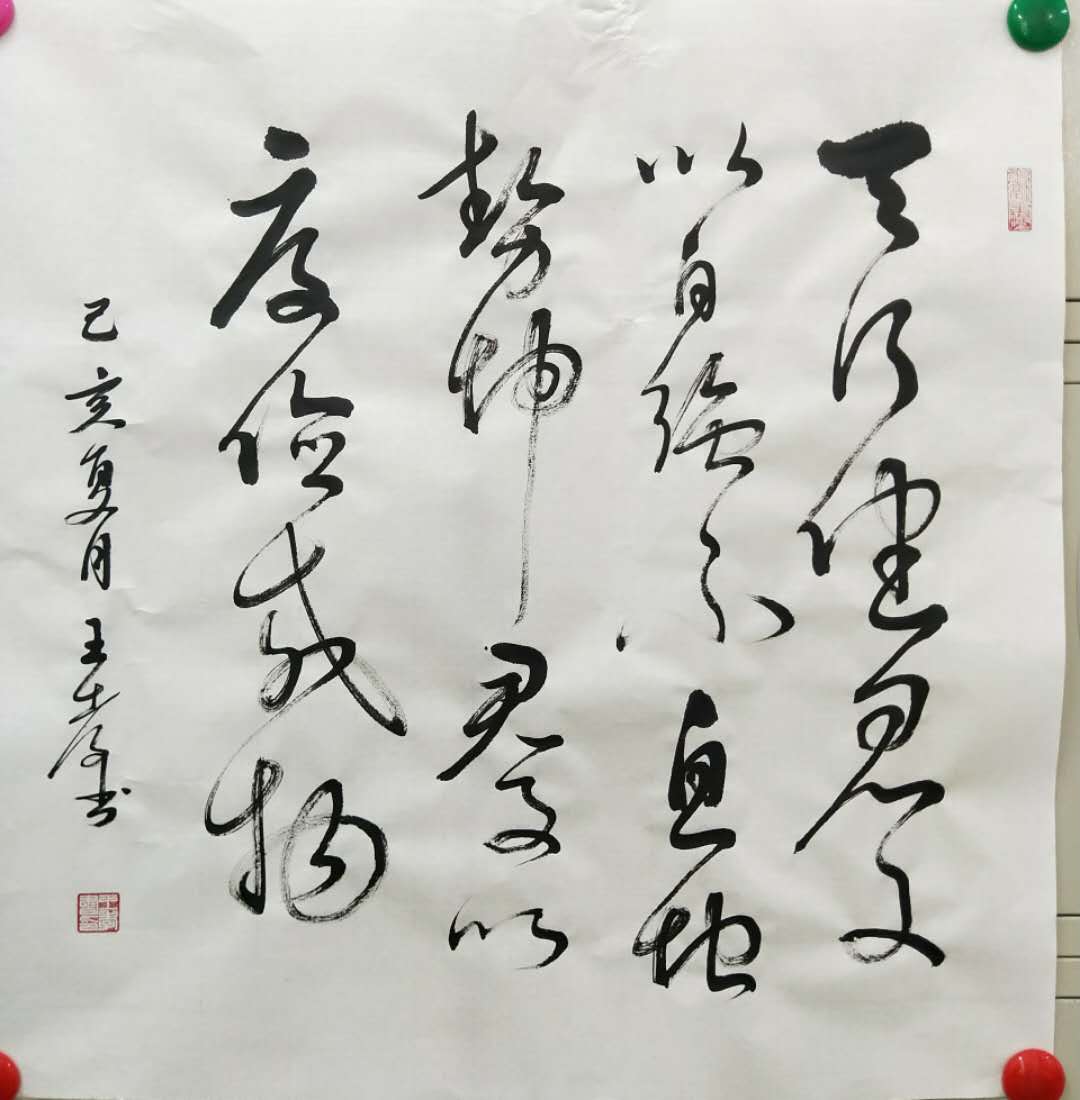 天行健君子
以自强不息地
势坤君子以
厚德载物
己亥夏月 王 书